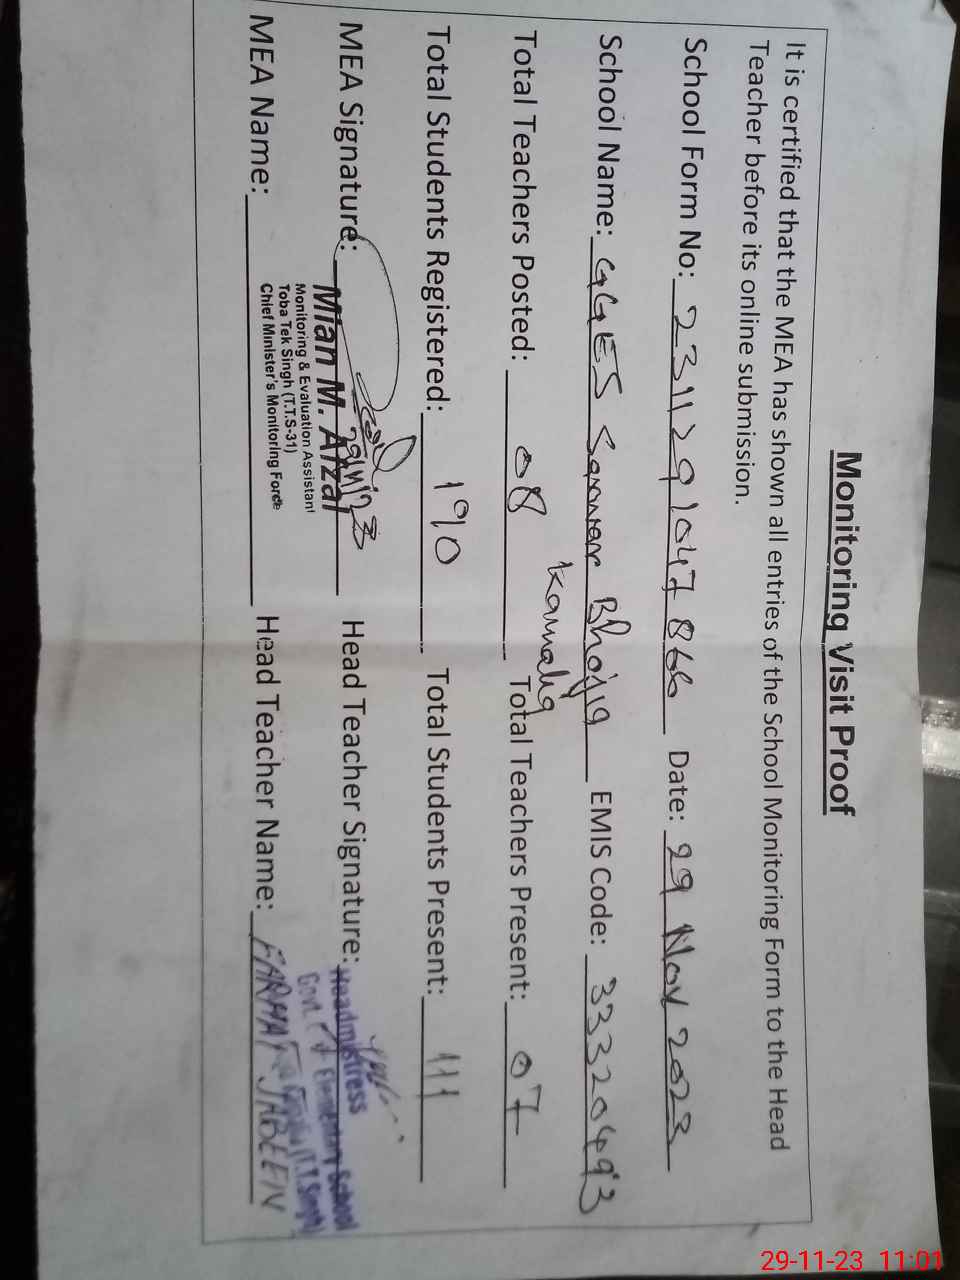 Monitoring Visit Proof
It is certified that the MEA has shown all entries of the School Monitoring Form to the Head
Teacher before its online submission.
School Form No: 231129 1047 866 Date: 29 Nov 2023
School Name: GGES Sarwar Bhojia EMIS Code: 33320493
Total Teachers Posted: 08 Total Teachers Present: 07
Total Students Registered: 190 Total Students Present: 111
MEA Signature: Head Teacher Signature:
Mian M. Afzal
Monitoring & Evaluation Assistant
Toba Tek Singh (T.T.S-31)
Chief Minister's Monitoring Force
Headmistress
Govt. Elementary School
(T.T.Singh)
MEA Name: Head Teacher Name: FARHAT JABEEN
29-11-23 11:01